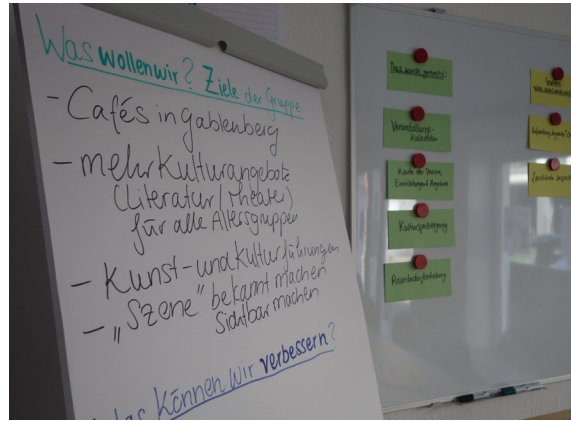 Was wollen wir? Ziele der Gruppe
- Cafés in Gablenberg
- mehr Kulturangebote
(Literatur/Theater)
für alle Altersgruppen
- Kunst- und Kulturführungen
- "Szene" bekannt machen
Sichtbar machen
Was können wir verbessern?
Das wurde gemacht:
Veranstaltungs-
kalender
Karte der Vereine,
Einrichtungen & Angebote
Kulturspaziergang
Raumbedarfserhebung